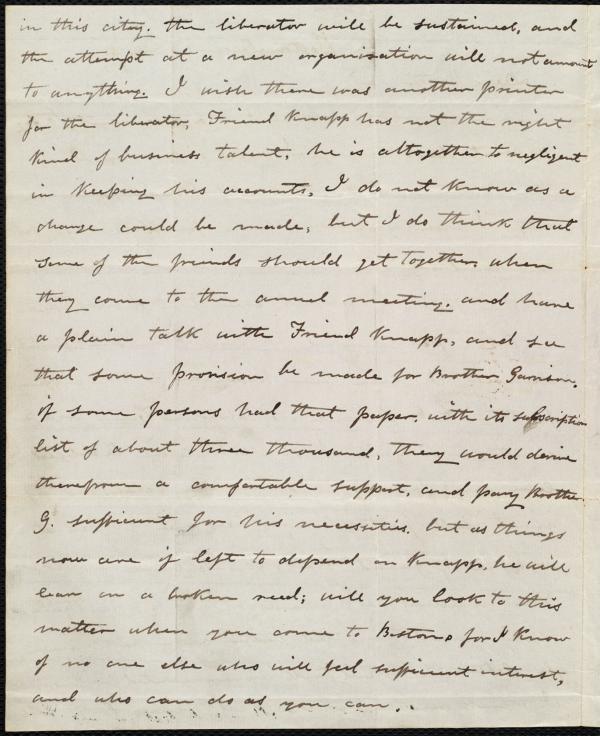 in this city. the liberator will be sustained, and
the attempt at a new organisation will not amount
to anything. I wish there was another printer
for the liberator, Friend Knapp has not the right
kind of business talent, he is altogether to negligent
in keeping his accounts, I do not know as a
change could be made, but I do think that
some of the friends should get together, when
they come to the annual meeting, and have
a plain talk with Friend Knapp, and see
that some provision be made for Brother Garrison,
if some persons had that paper, with its subscription
list of about three thousand, they would derive
therefrom a comfortable support, and pay Brother
G. sufficient for his necessities. but as things
now are if left to depend on Knapp, he will
lean on a broken reed; will you look to this
matter when you come to Boston, for I know
of no one else who will feel sufficient interest,
and who can do as you can..